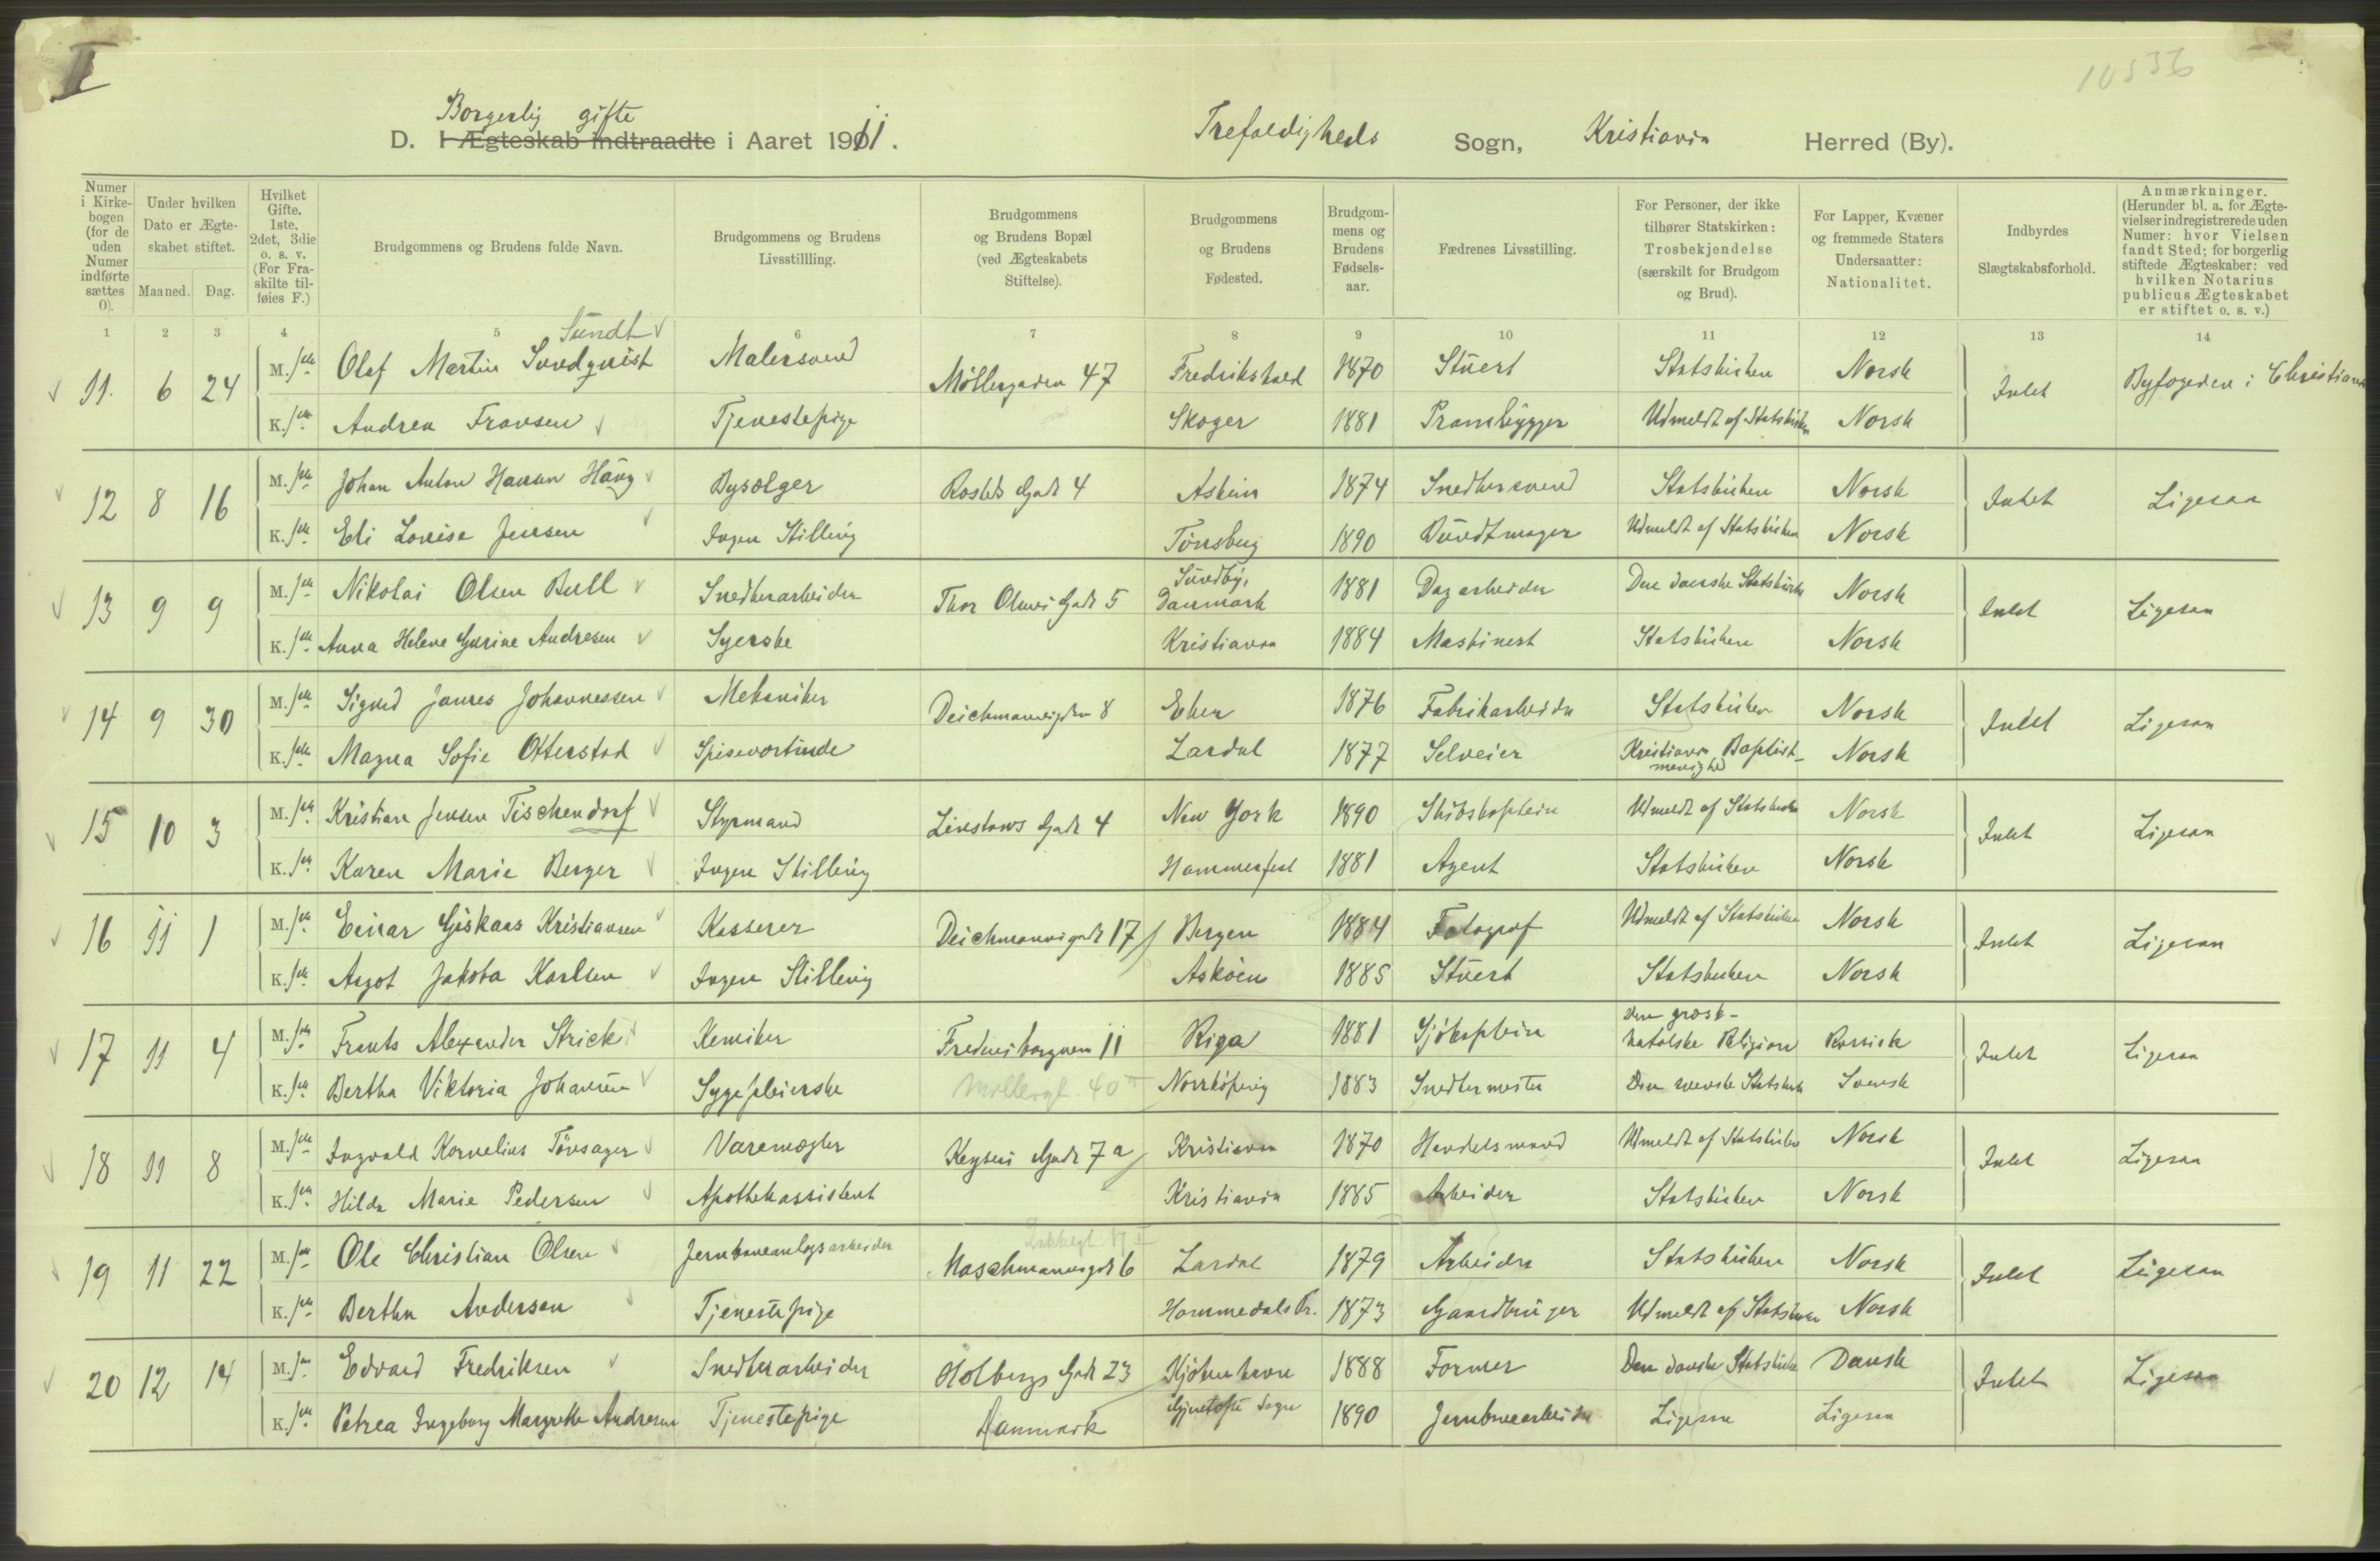 I
10536
Borgerlig gifte
D. I Ægteskab indtraadte i Aaret 1911. Trefoldigheds Sogn, Kristiania Herred (By).
Numer i Kirkebogen (for de uden Numer indførte sættes 0).
Under hvilken Dato er Ægteskabet stiftet.
Maaned. Dag.
Hvilket Gifte. 1ste, 2det, 3die o. s. v. (For Fraskilte tilføies F.)
Brudgommens og Brudens fulde Navn.
Brudgommens og Brudens Livsstillling.
Brudgommens og Brudens Bopæl (ved Ægteskabets Stiftelse).
Brudgommens og Brudens Fødested.
Brudgommens og Brudens Fødselsaar.
Fædrenes Livsstilling.
For Personer, der ikke tilhører Statskirken: Trosbekjendelse (særskilt for Brudgom og Brud).
For Lapper, Kvæner og fremmede Staters Undersaatter: Nationalitet.
Indbyrdes Slægtskabsforhold.
Anmærkninger. (Herunder bl. a. for Ægtevielser indregistrerede uden Numer: hvor Vielsen fandt Sted; for borgerlig stiftede Ægteskaber: ved hvilken Notarius publicus Ægteskabet er stiftet o. s. v.)
1 2 3 4 5 6 7 8 9 10 11 12 13 14
Sundt
11. 6 24 M. 1ste Olaf Martin Sundquist Malersvend Møllergaden 47 Fredrikshald 1870 Stuert Statskirken Norsk Intet Byfogden i Christiania
K. 1ste Andrea Fransen Tjenestepige Skoger 1881 Prambygger Udmeldt af Statskirken Norsk
12 8 16 M. 1ste Johan Anton Hansen Haug Bysælger Rosteds Gade 4 Askim 1874 Snedkersvend Statskirken Norsk Intet Ligesaa
K. 1ste Eli Lovise Jensen Ingen Stilling Tönsberg 1890 Buntmager Udmeldt af Statskirken Norsk
13 9 9 M. 1ste Nikolai Olsen Bull Snedkerarbeider Thor Olsens Gade 5 Sundby, Danmark 1881 Dagarbeider Den danske Statskirke Norsk Intet Ligesaa
K. 1ste Anna Helene Gurine Andresen Syerske Kristiania 1884 Maskinist Statskirken Norsk
14 9 30 M. 1ste Sigurd James Johannessen Mekaniker Deichmansgaden 8 Eker 1876 Fabrikarbeider Statskirken Norsk Intet Ligesaa
K. 1ste Magna Sofie Otterstad Spisevertinde Lardal 1877 Selveier Kristiania Baptistmenighed Norsk
15 10 3 M. 1ste Kristian Jensen Tischendorf Styrmand Linstows Gade 4 New York 1890 Skibskaptein Udmeldt af Statskirken Norsk Intet Ligesaa
K. 1ste Karen Marie Berger Ingen Stilling Hammerfest 1881 Agent Statskirken Norsk
16 11 1 M. 1ste Einar Giskaas Kristiansen Kasserer Deichmansgade 17 Bergen 1884 Fotograf Udmeldt af Statskirken Norsk Intet Ligesaa
K. 1ste Aagot Jakoba Karlsen Ingen Stilling Askøen 1885 Stuert Statskirken Norsk
17 11 4 M. 1ste Frants Alexander Strick Kemiker Fredensborgveien 11 Riga 1881 Sjökaptein Den græskkatolske Religion Russisk Intet Ligesaa
K. 1ste Bertha Viktoria Johansson Sygepleierske Møllergt. 40 Norrköping 1883 Snedkermester Den svenske Statskirke Svensk
18 11 8 M. 1ste Ingvald Kornelius Tönsager Varemægler Keysers Gade 7a Kristiania 1870 Handelsmand Udmeldt af Statskirken Norsk Intet Ligesaa
K. 1ste Hilda Marie Pedersen Apothekassistent Kristiania 1885 Arbeider Statskirken Norsk
19 11 22 M. 1ste Ole Christian Olsen Jernbaneanlægsarbeider Maschmannsgade 6 Lardal 1879 Arbeider Statskirken Norsk Intet Ligesaa
K. 1ste Bertha Andersen Tjenestepige Hommedals Pr. 1873 Gaardbruger Udmeldt af Statskirken Norsk
20 12 14 M. 1ste Edvard Fredriksen Snedkerarbeider Holbergs Gade 23 Kjøbenhavn 1888 Former Den danske Statskirke Dansk Intet Ligesaa
K. 1ste Petrea Ingeborg Margrethe Andresen Tjenestepige Danmark Gjentofte Sogn 1890 Jernbanearbeider Ligesaa Ligesaa